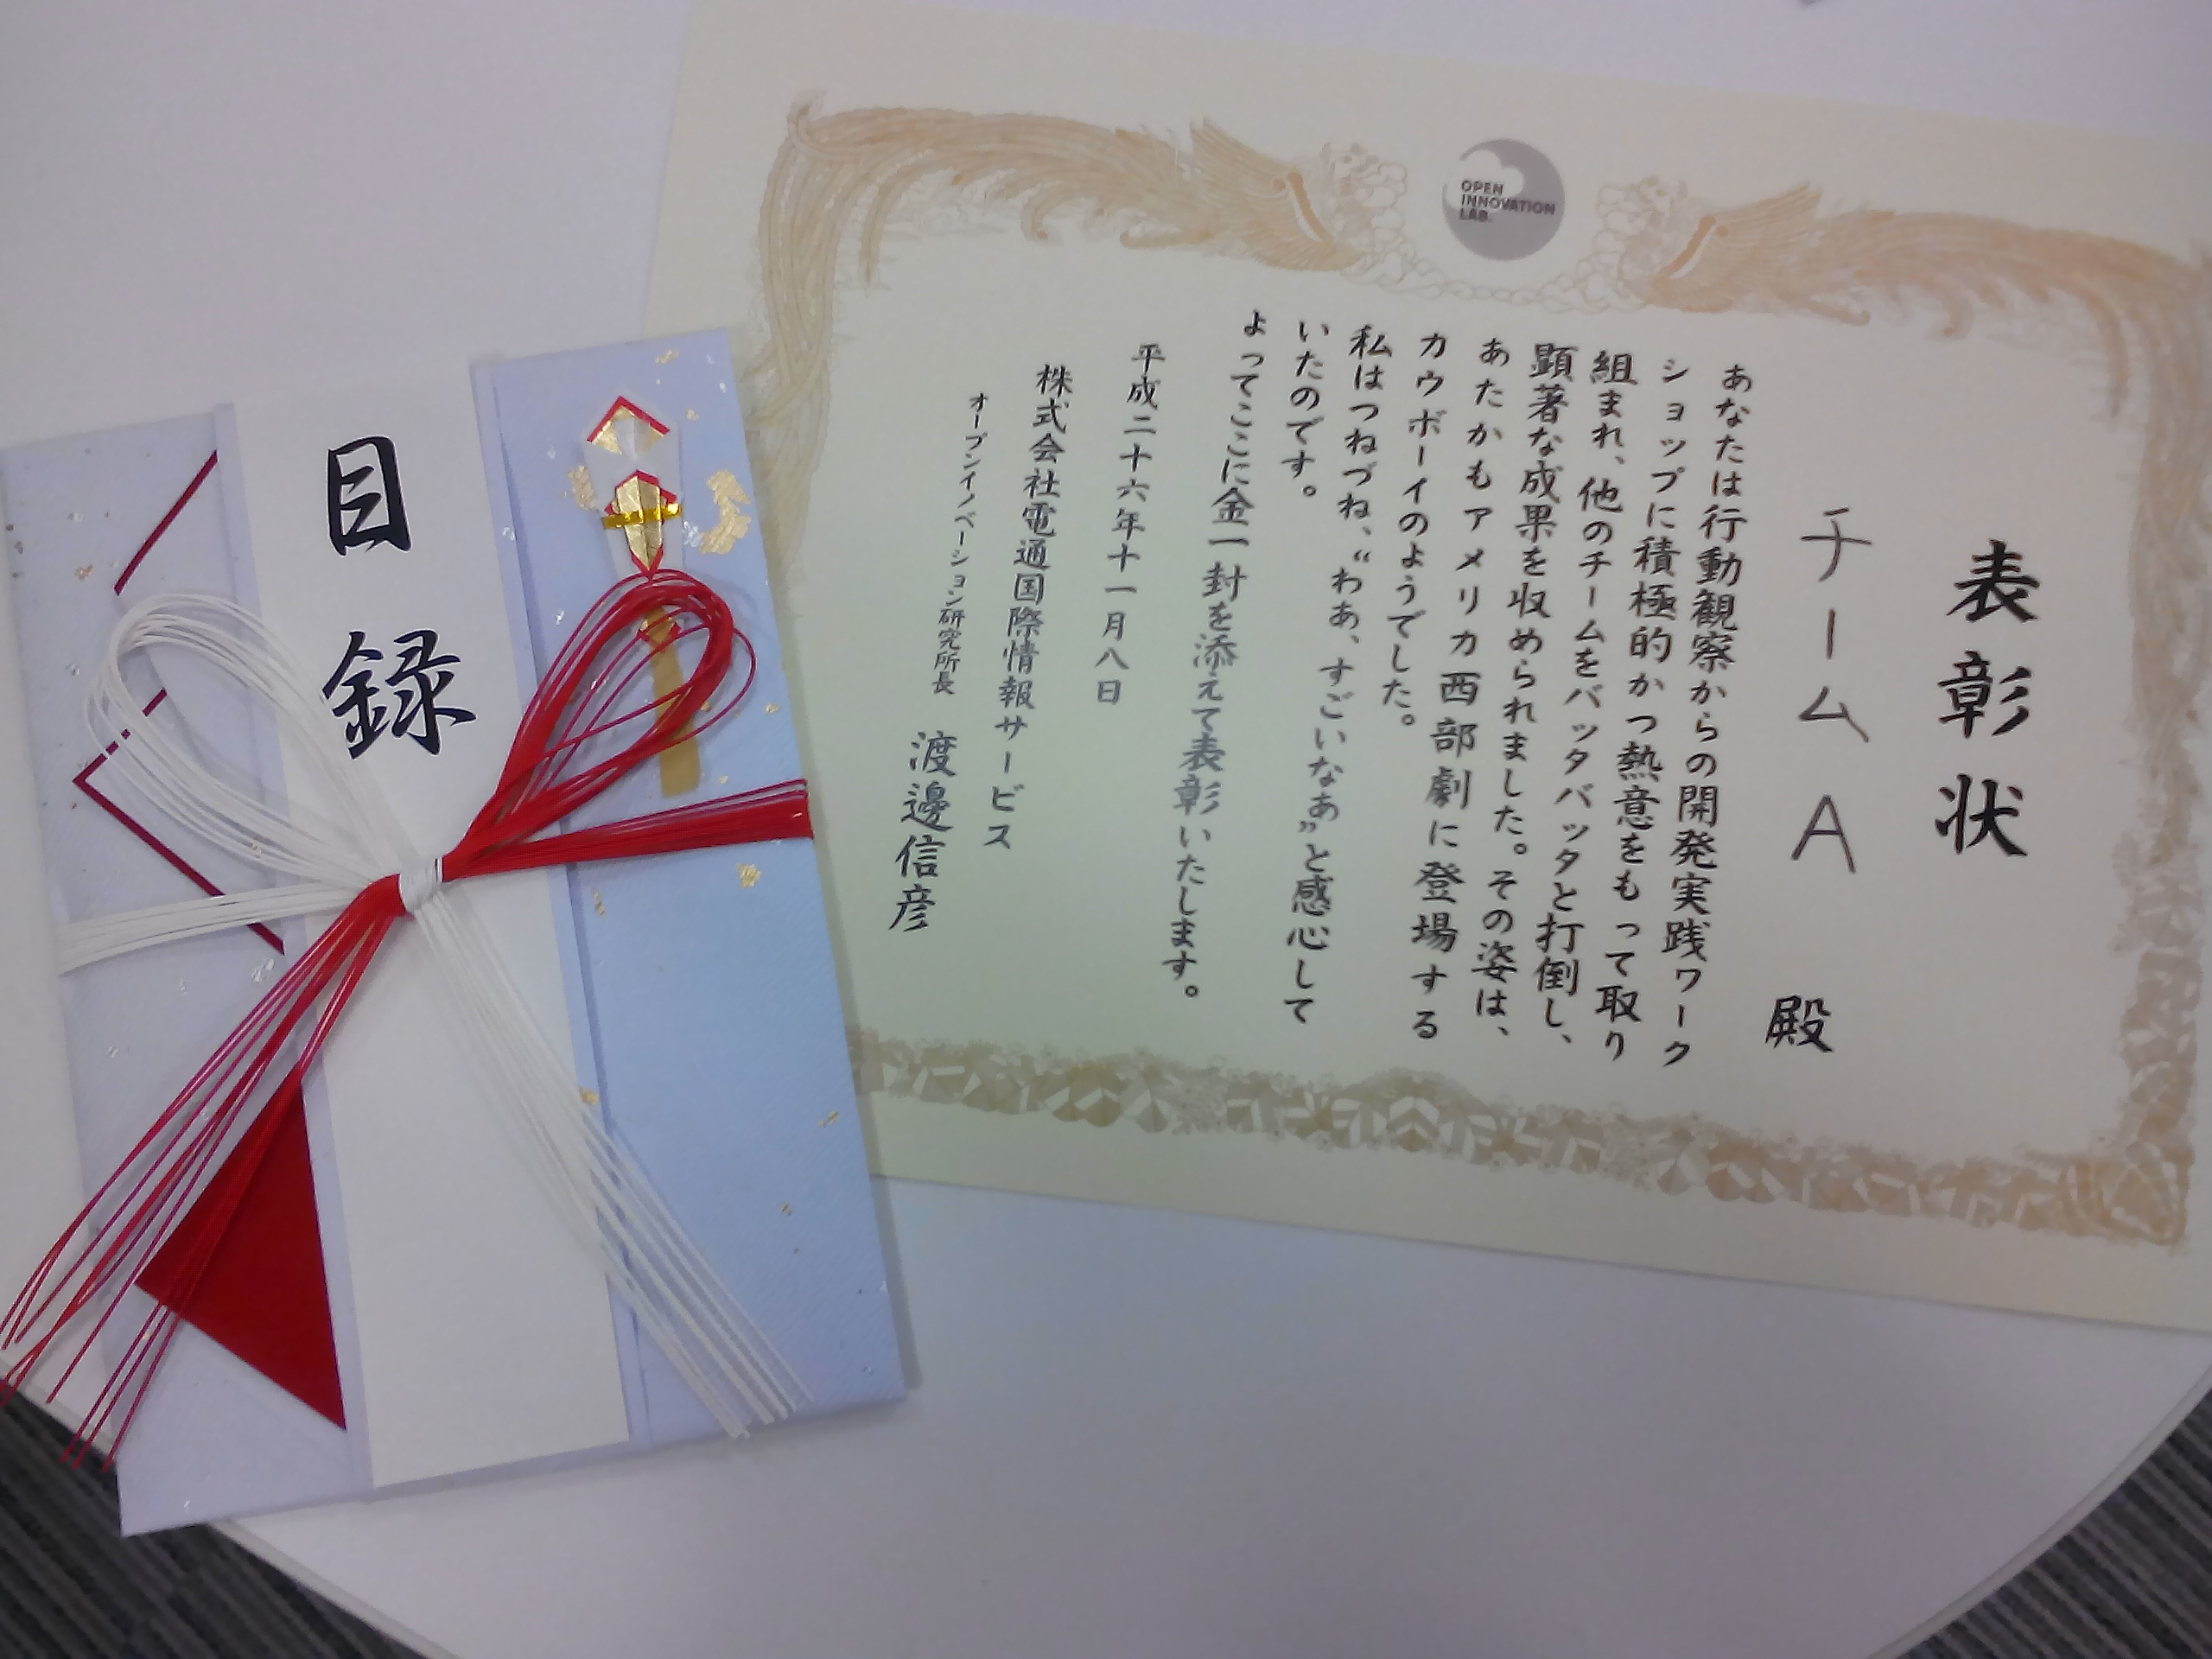 OPEN
INNOVATION
LAB.
表彰状
チームA 殿
あなたは行動観察からの開発実践ワーク
ショップに積極的かつ熱意をもって取り
組まれ、他のチームをバッタバッタと打倒し、
顕著な成果を収められました。その姿は、
あたかもアメリカ西部劇に登場する
カウボーイのようでした。
私はつねづね、“わあ、すごいなあ”と感心して
いたのです。
よってここに金一封を添えて表彰いたします。
平成二十六年十一月八日
株式会社電通国際情報サービス
オープンイノベーション研究所長 渡邊信彦
目録